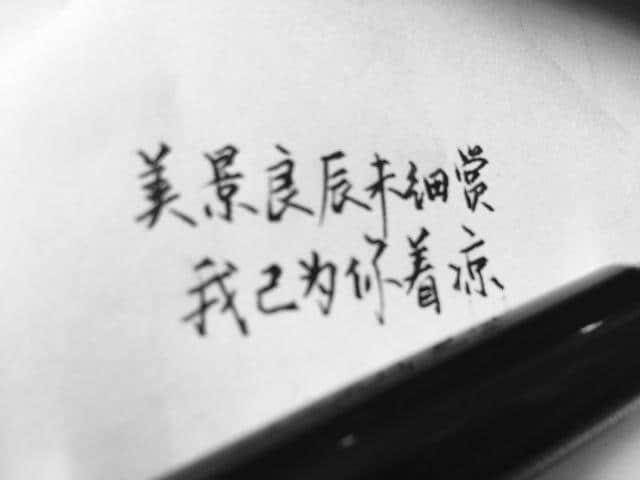 美景良辰未细赏
我已为你着凉